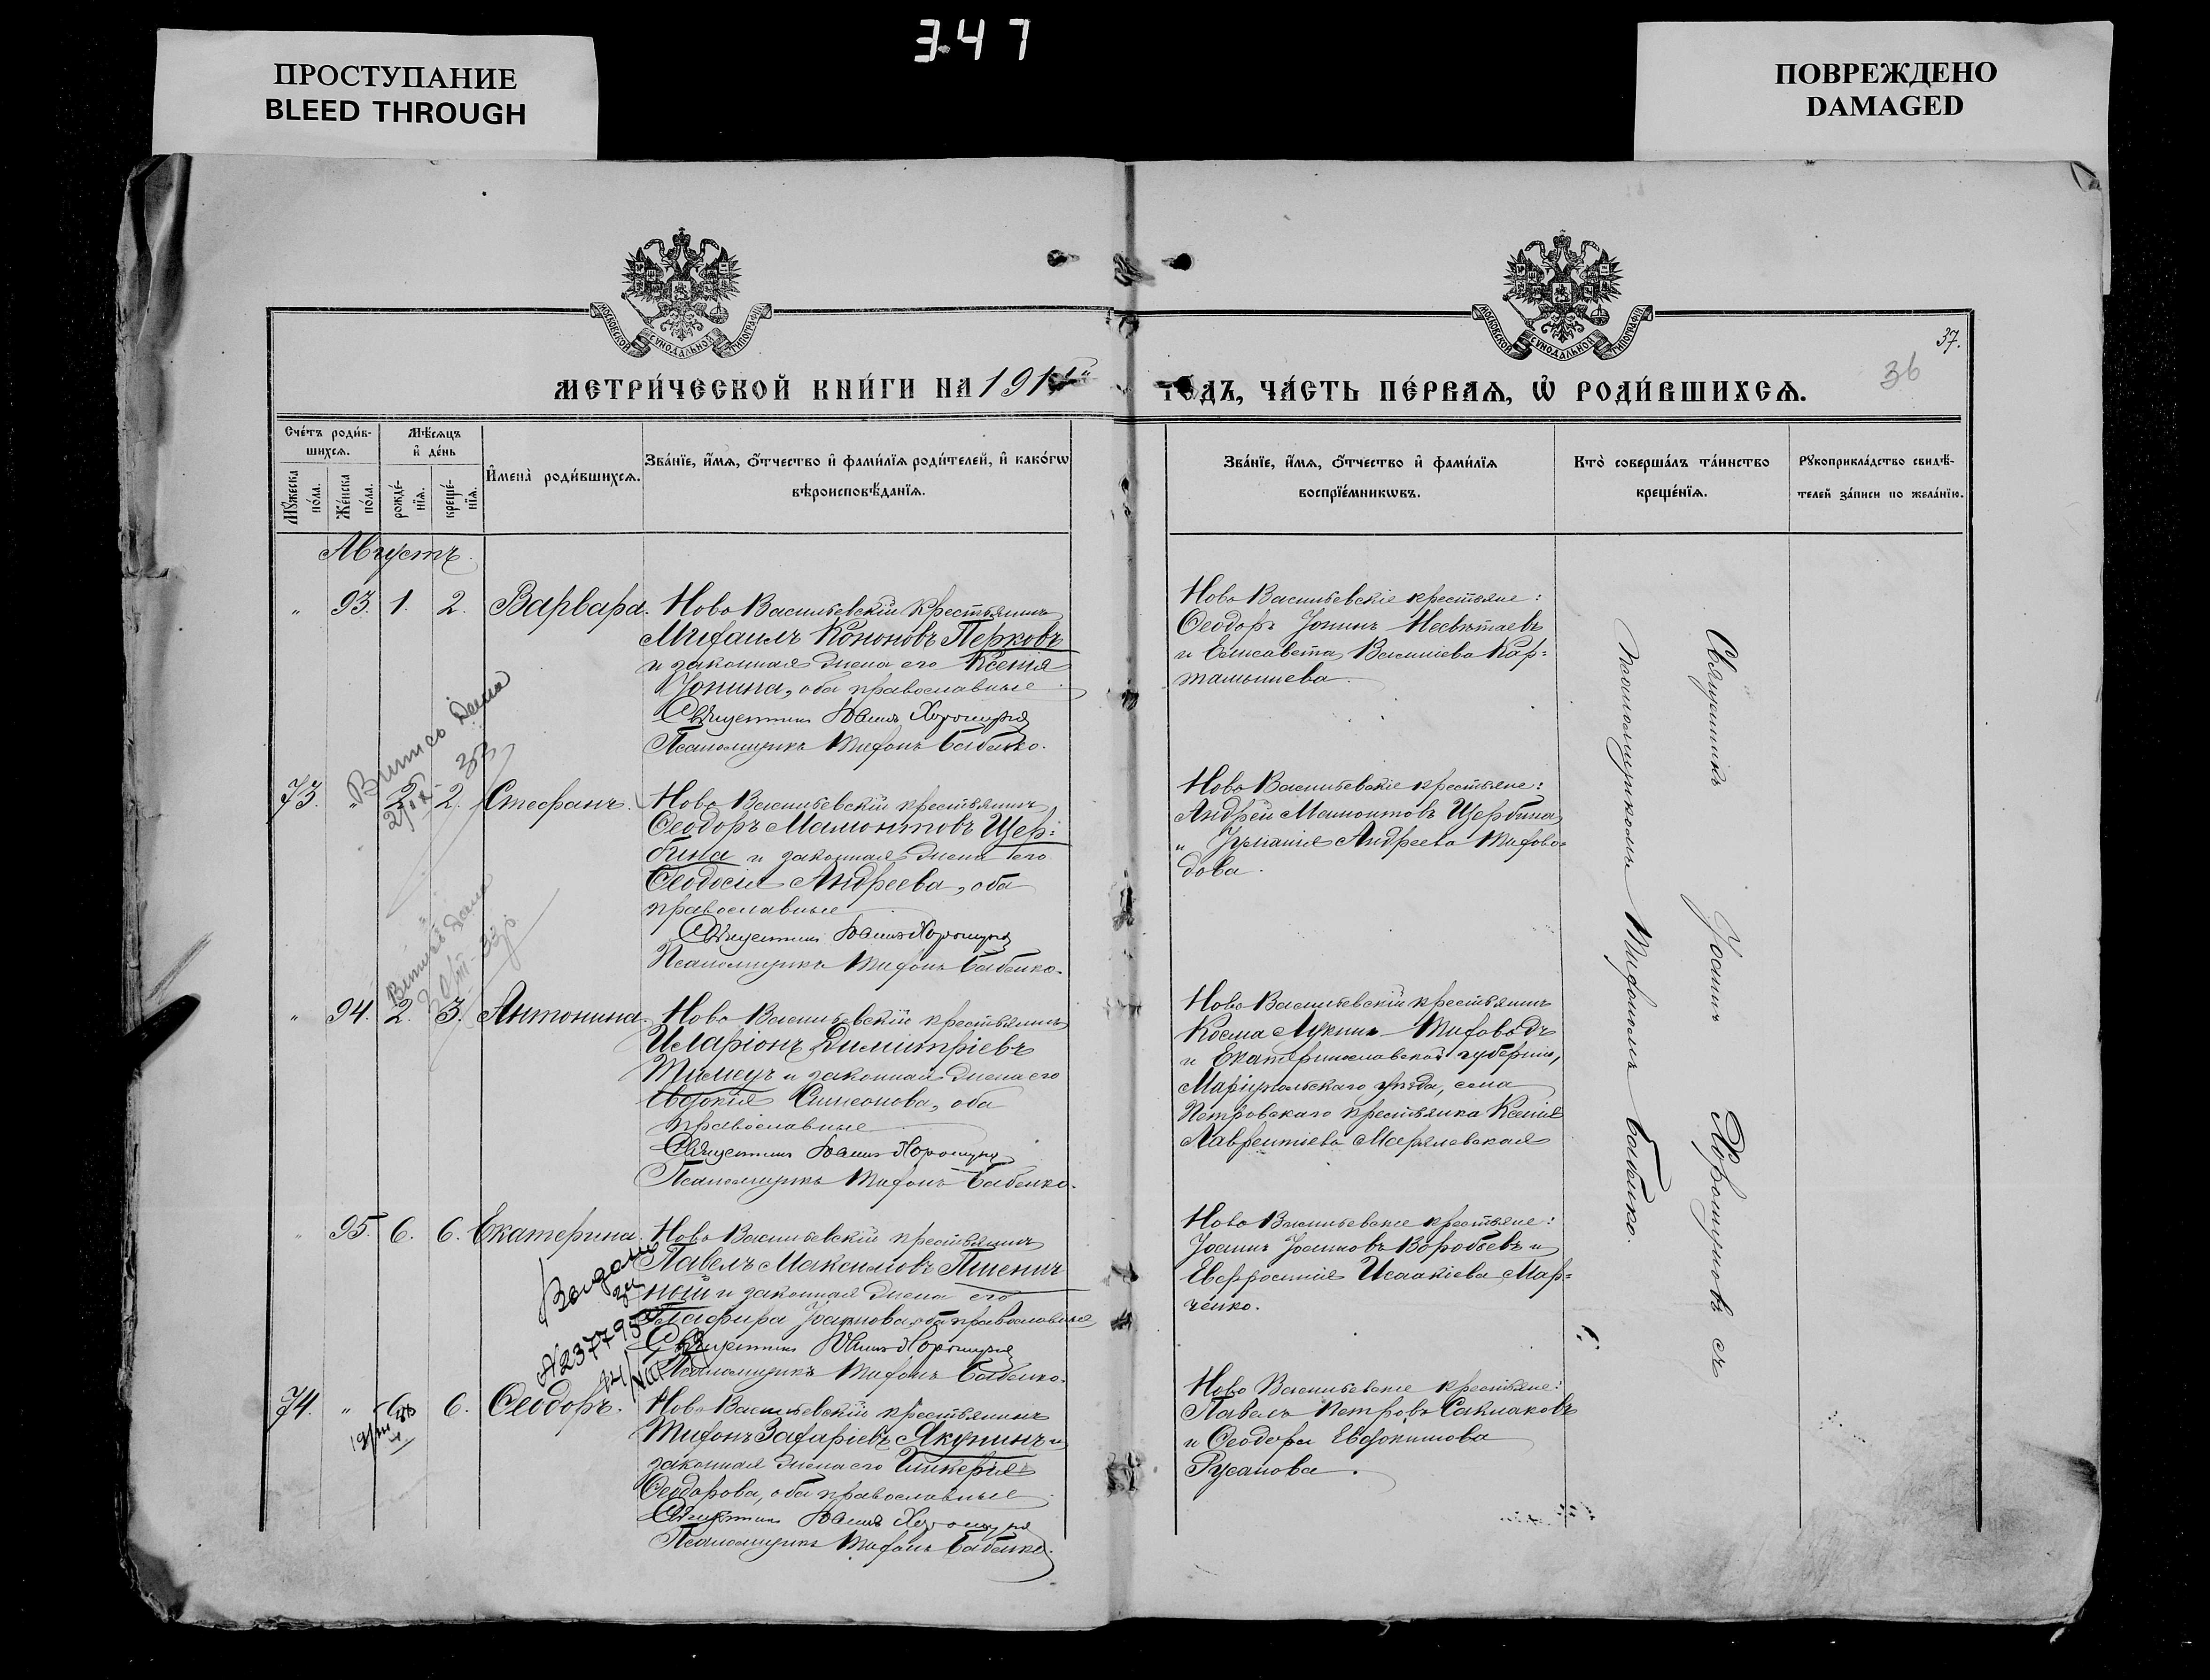 347
ПРОСТУПАНИЕ
BLEED THROUGH
ПОВРЕЖДЕНО
DAMAGED
МОСКОВСКОЙ СѴНОДАЛЬНОЙ ТИПОГРАФІИ
МОСКОВСКОЙ СѴНОДАЛЬНОЙ ТИПОГРАФІИ
37.
36
МЕТРИ́ЧЕСКОЙ КНИ́ГИ НА 191
ГОДЪ, ЧА́СТЬ ПЕ́РВАѦ, Ѡ҆ РОДИ́ВШИХСѦ.
Сче́тъ роди́в-
шихсѧ.
Мꙋ́жеска по́ла.
Же́нска по́ла.
Мѣ́сѧцъ
и҆ де́нь
рожде́-
нїѧ.
креще́-
нїѧ.
И҆мена̀ роди́вшихсѧ.
Зва́нїе, и҆́мѧ, ѻ҆́тчество и҆ фами́лїѧ роди́телей, и҆ како́гѡ
вѣроисповѣ́данїѧ.
Зва́нїе, и҆́мѧ, ѻ҆́тчество и҆ фами́лїѧ
воспрїе́мникѡвъ.
Кто̀ соверша́лъ та́инство
креще́нїѧ.
Рꙋкоприкла́дство свидѣ́-
телей за́писи по жела́нїю.
Августъ
" 93. 1. 2. Варвара. Ново Васильевскій крестьянинъ
Михаилъ Кононовъ Перковъ
и законная жена его Ксенія
Іонина, оба православные.
Священникъ Іоаннъ Хорошуновъ
Псаломщикъ Тифонъ Бабенко.
Ново Васильевскіе крестьяне:
Ѳеодоръ Іонинъ Несвѣтаевъ
и Елисавета Василіева Кар=
тамышева.
73. " 2. 2. Стефанъ. Ново Васильевскій крестьянинъ
Ѳеодоръ Мамонтовъ Щер=
бина и законная жена его
Ѳеодосія Андреева, оба
православные
Священникъ Іоаннъ Хорошуновъ
Псаломщикъ Тифонъ Бабенко.
Ново Васильевскіе крестьяне:
Андрей Мамонтовъ Щербина
и Іуліанія Андреева Тифово=
дова.
" 94. 2. 3. Антонина. Ново Васильевскій крестьянинъ
Иларіонъ Димитріевъ
и законная жена его
Евдокія Симеонова, оба
православные
Священникъ Іоаннъ Хорошуновъ
Псаломщикъ Тифонъ Бабенко.
Ново Васильевскій крестьянинъ
Косма Лукинъ
и Екатеринославской губерніи,
Маріупольскаго уѣзда, села
Петровскаго крестьянка Ксенія
Лаврентіева
" 95. 6. 6. Екатерина. Ново Васильевскій крестьянинъ
Павелъ Максимовъ Пшенич
ный и законная жена его
Глафира Іоаннова, оба православные
Священникъ Іоаннъ Хорошуновъ
Псаломщикъ Тифонъ Бабенко.
Ново Васильевскіе крестьяне:
Іоаннъ Іоанновъ Воробьевъ и
Евфросинія Исаакіева Мар=
ченко.
74. " 6. 6. Ѳеодоръ. Ново Васильевскій крестьянинъ
Тифонъ Захаріевъ Якунинъ и
законная жена его Гликерія
Ѳеодорова, оба православные
Священникъ Іоаннъ Хорошуновъ
Псаломщикъ Тифонъ Бабенко.
Ново Васильевскіе крестьяне:
Павелъ Петровъ
и Ѳеодора Евдокимова
Русанова.
Священникъ Іоаннъ Хорошуновъ съ
псаломщикомъ Тифономъ Бабенко.